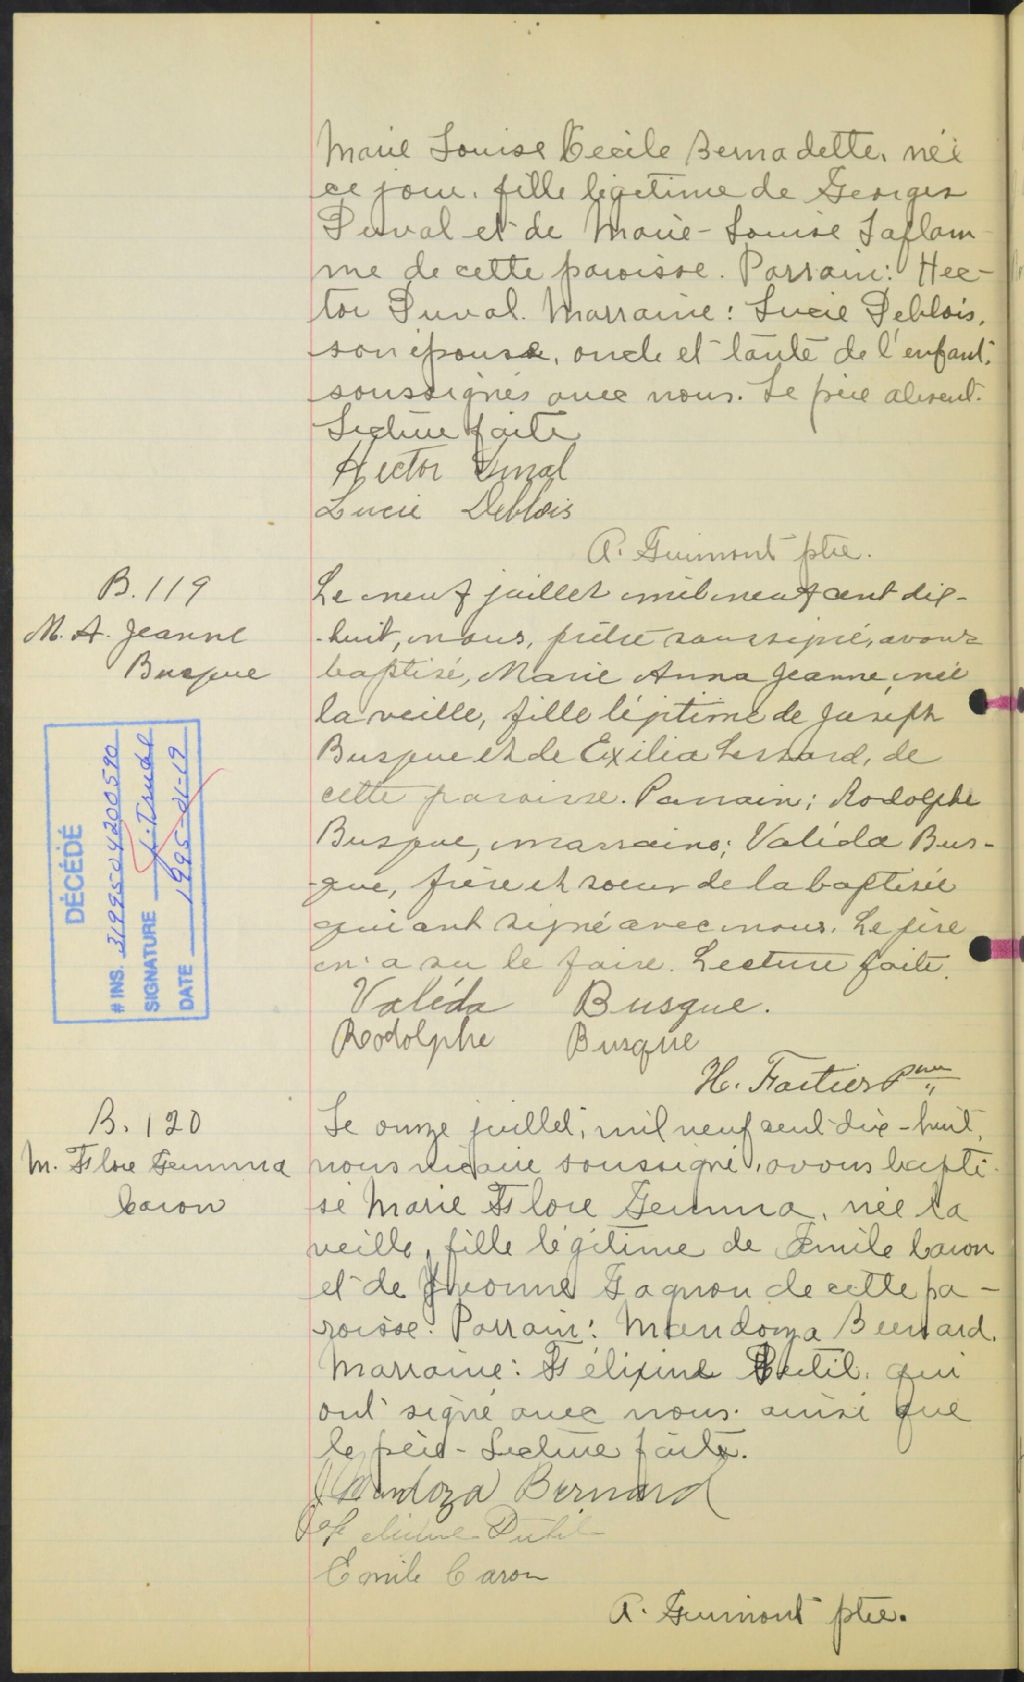 Marie Louise Cécile Bernadette, née
ce jour, fille légitime de Georges
Duval et de Marie-Louise Laflam-
me de cette paroisse. Parrain: Hec-
tor Duval. Marraine: Lucie Deblois,
son épouse, oncle et tante de l'enfant,
soussignés avec nous. Le père absent.
Lecture faite
Hector Duval
Lucie Deblois
A. Guimont ptre.
B. 119
M. A. Jeanne
Busque
Le neuf juillet mil neuf cent dix-
-huit, nous, prêtre soussigné, avons
baptisé, Marie Anna Jeanne, née
la veille, fille légitime de Joseph
Busque et de Exilia Lessard, de
cette paroisse. Parrain; Rodolphe
Busque, marraine; Valéda Bus-
-que, frère et soeur de la baptisée
qui ont signé avec nous. Le père
n'a su le faire. Lecture faite.
Valéda Busque.
Rodolphe Busque
H. Fortier Ptre
DÉCÉDÉ
# INS. 3199504200590
SIGNATURE
DATE 1995-01-19
B. 120
M. Flore Gemma
Caron
Le onze juillet, mil neuf cent dix-huit,
nous vicaire soussigné, avons bapti-
sé Marie Flore Gemma, née la
veille, fille légitime de Emile Caron
et de Yvonne Gagnon de cette pa-
roisse. Parrain: Mandoza Bernard.
Marraine: Félixine Dutil, qui
ont signé avec nous ainsi que
le père - Lecture faite.
Mandoza Bernard
Dutil
Emile Caron
A. Guimont ptre.